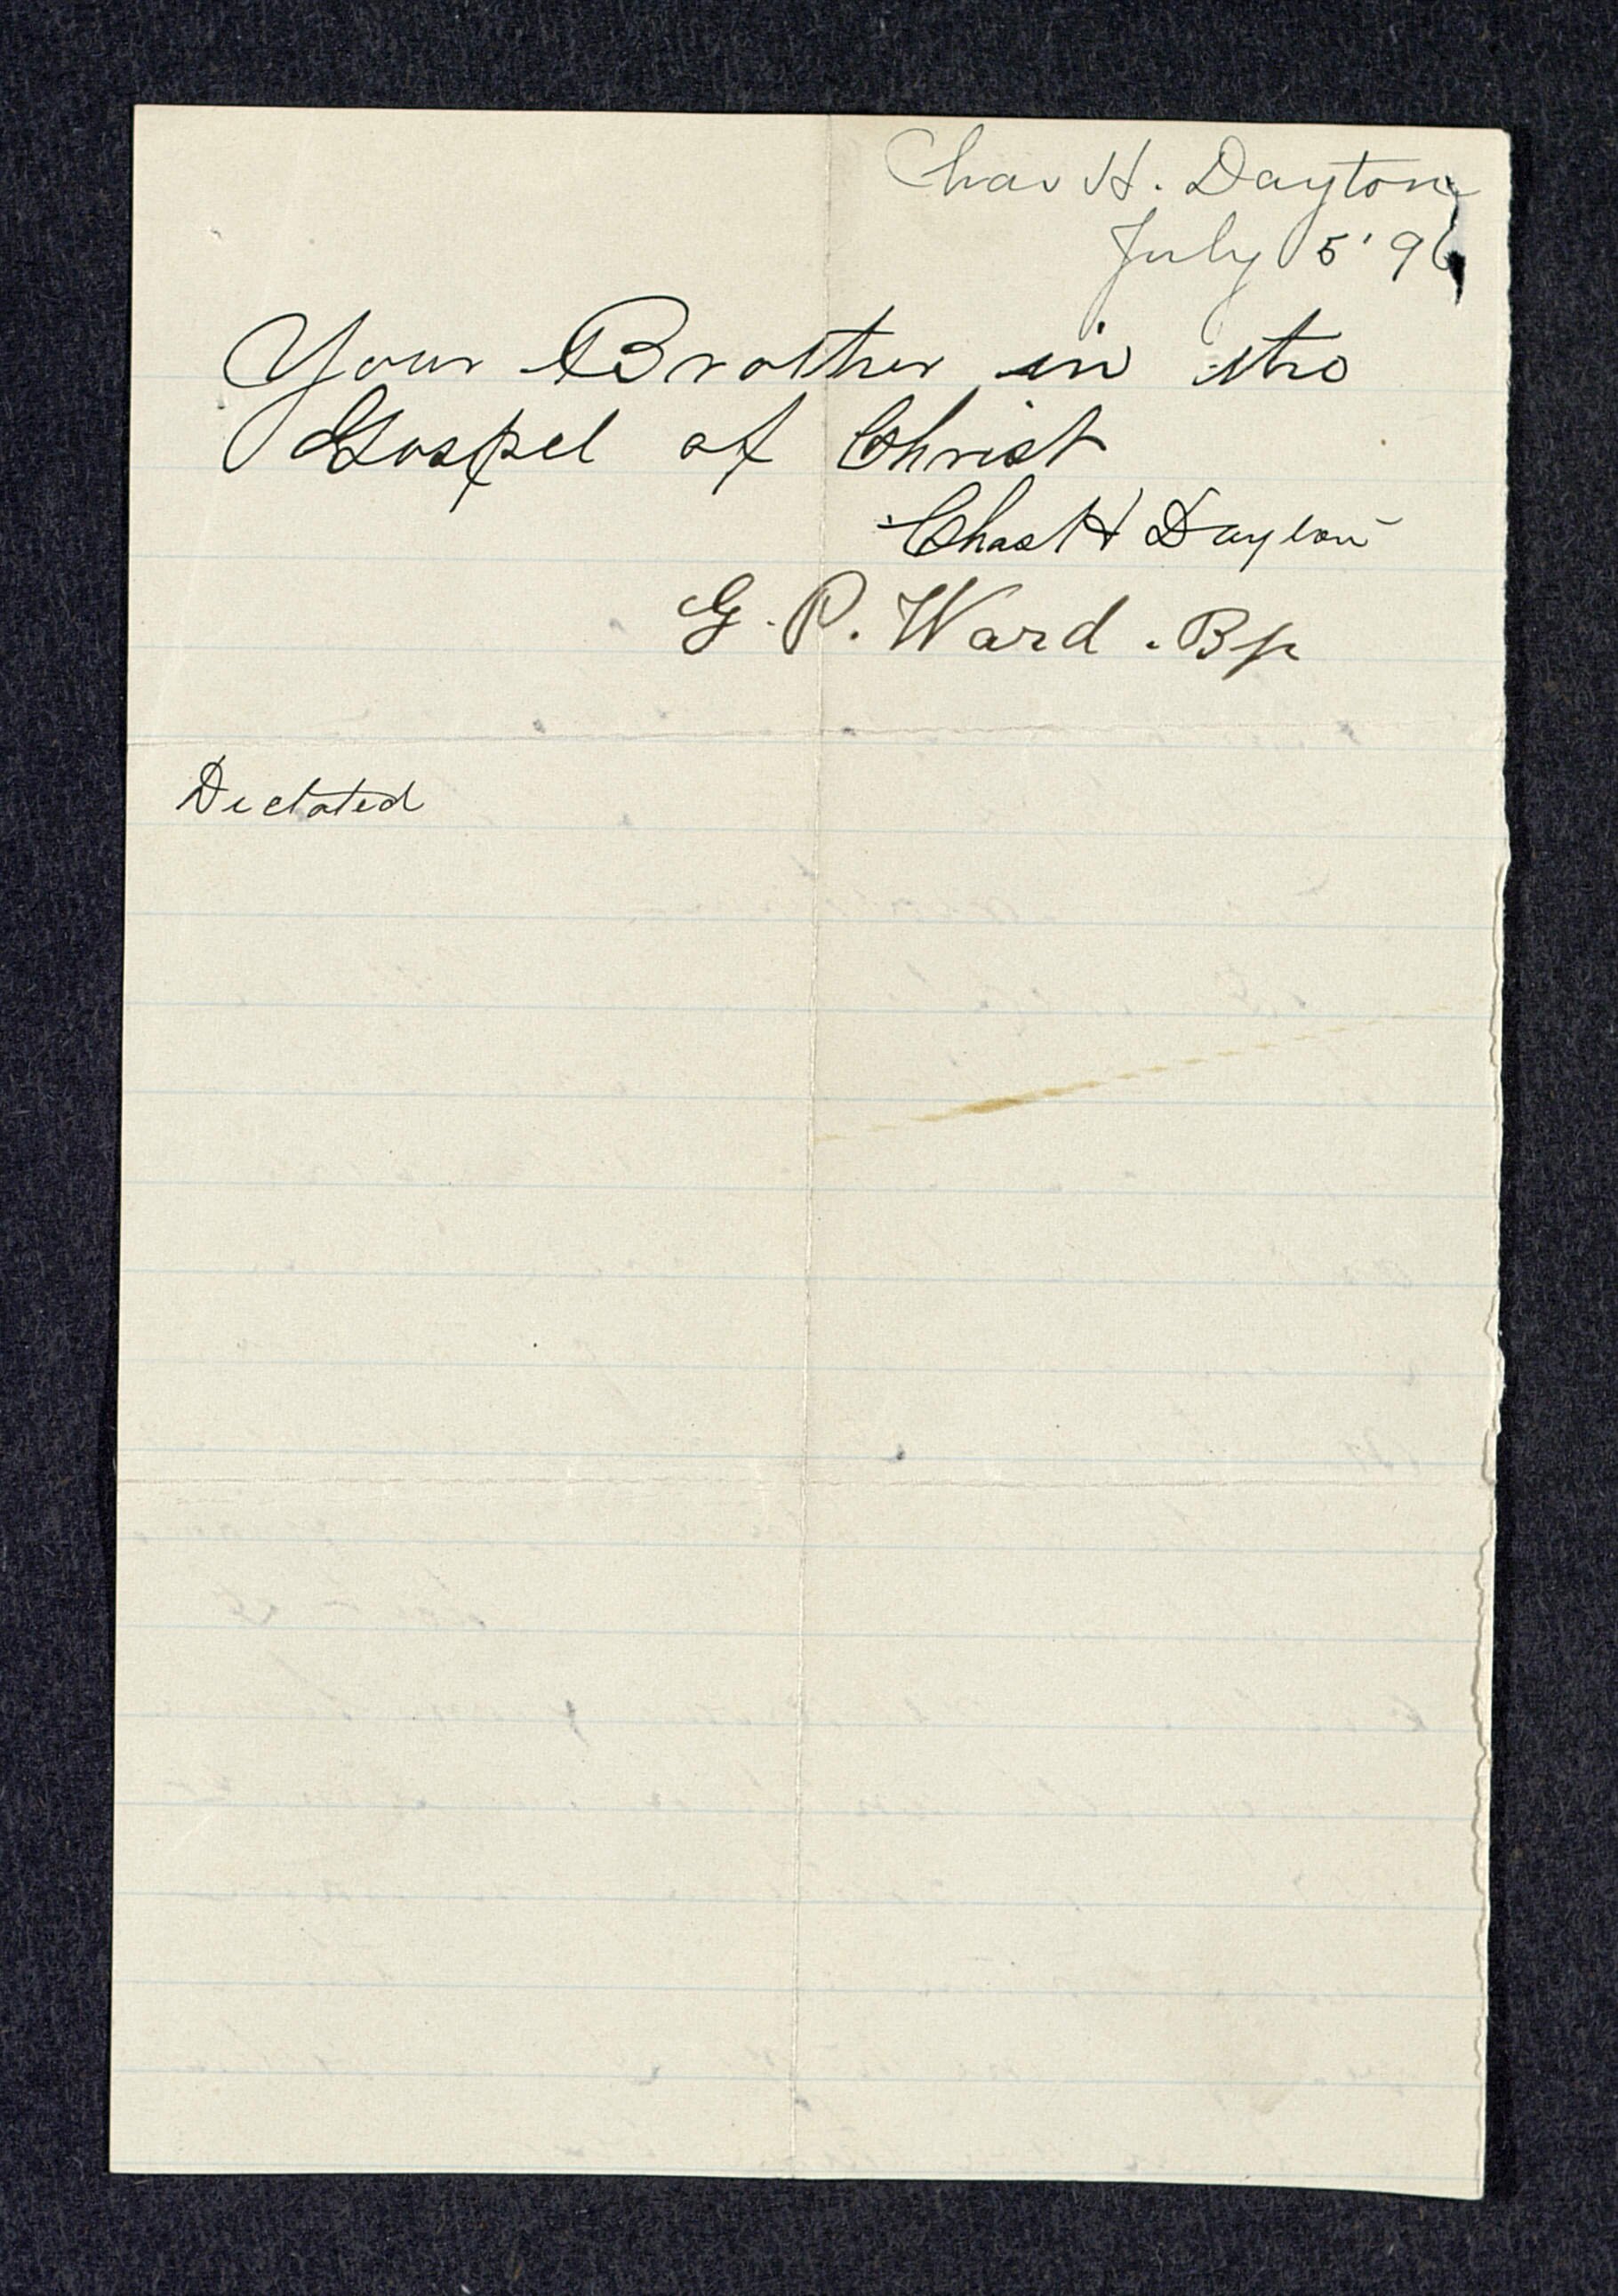 Chas H. Dayton
July 5' 96
Your Brother in the
Gospel of Christ
Chas H Dayton
G. P. Ward. Bp
Dictated